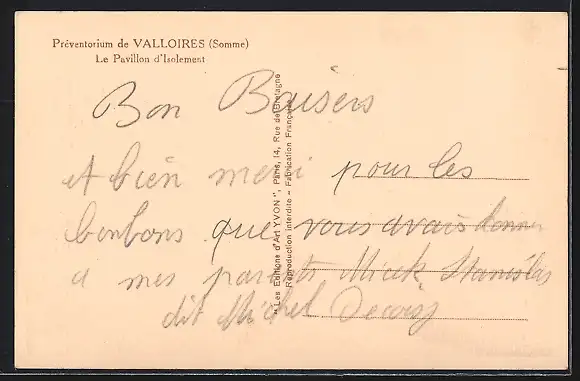 Préventorium de VALLOIRES (Somme)
Le Pavillon d'Isolement
Bon Baisers
et bien merci pour les
bonbons que vous avais donner
a mes parents Micek Stanislas
dit Michel
"Les Editions d'Art YVON", Paris, 14, Rue de Bretagne
Reproduction interdite - Fabrication Française